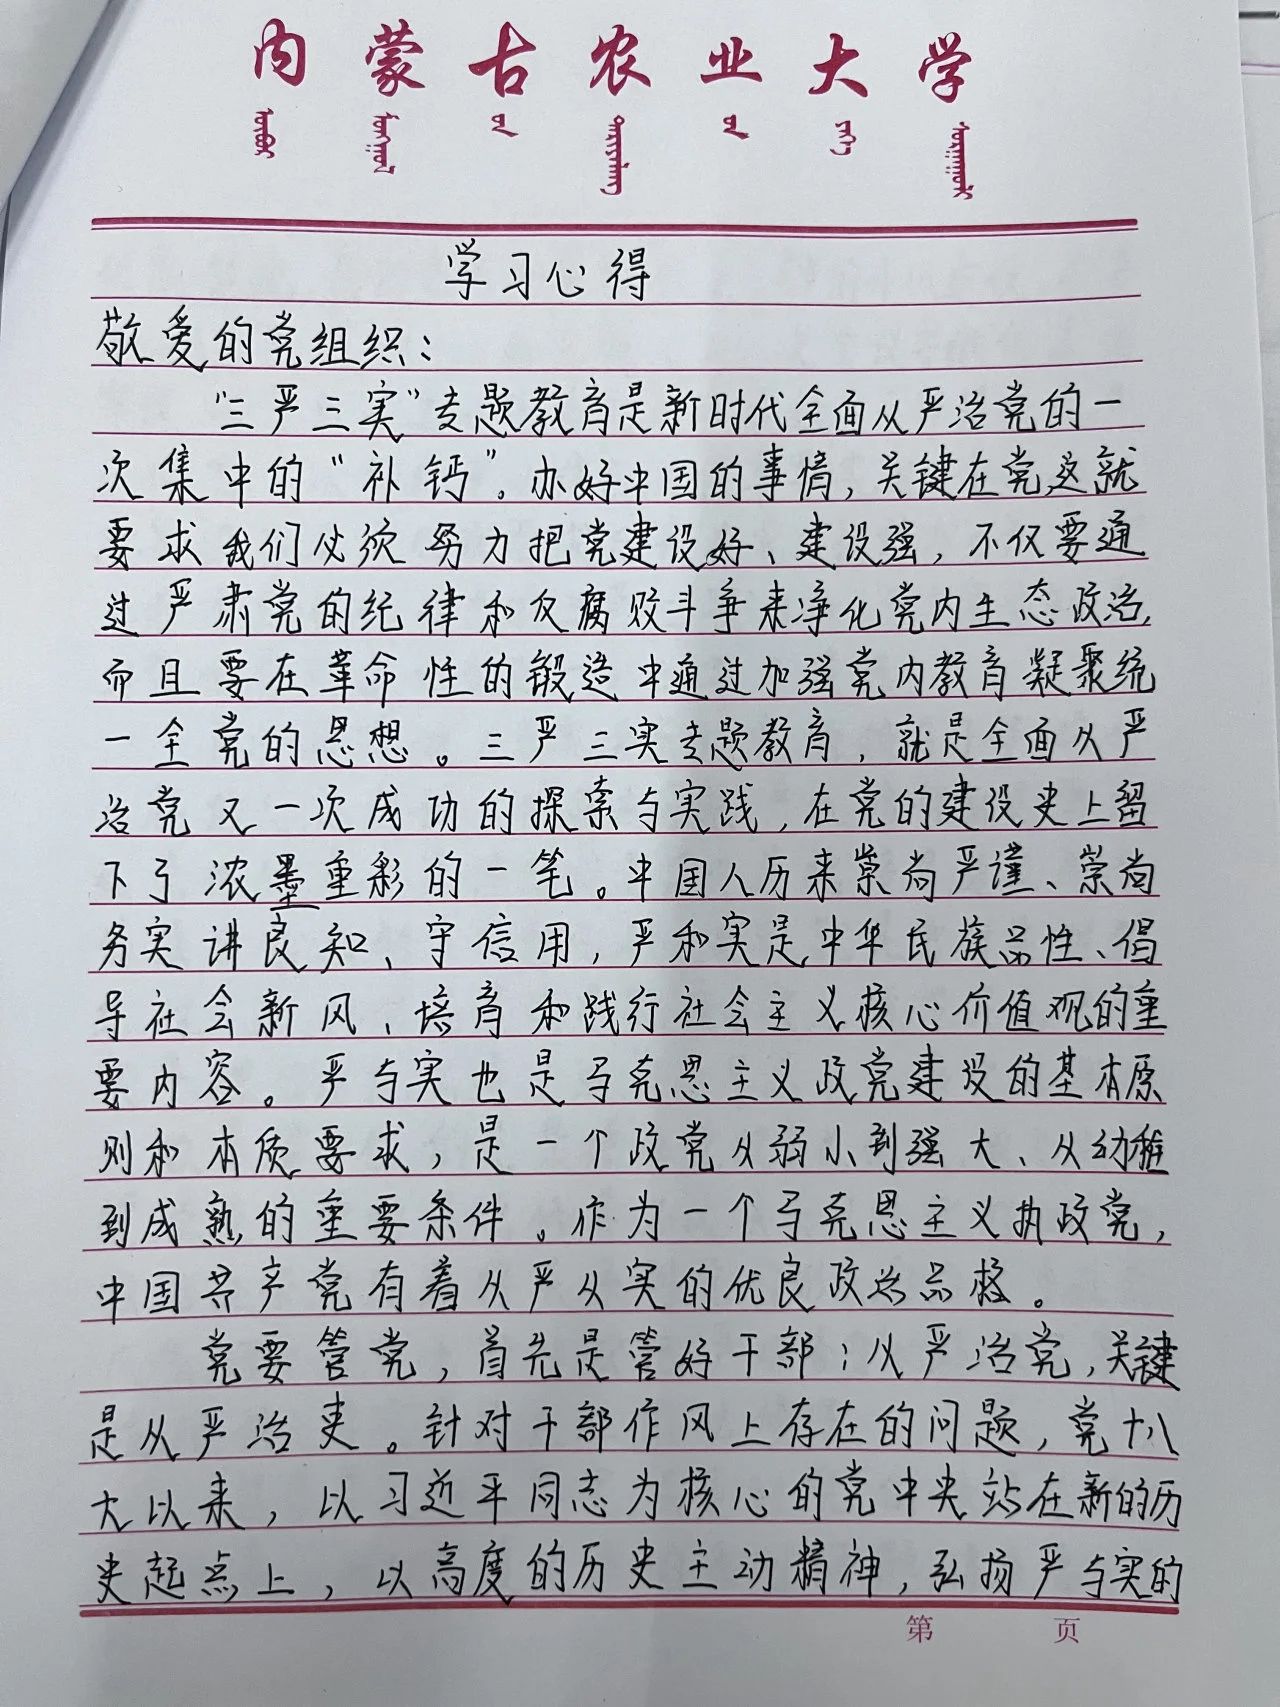 内蒙古农业大学
学习心得
敬爱的党组织：
“三严三实”专题教育是新时代全面从严治党的一
次集中的“补钙”。办好中国的事情，关键在党，这就
要求我们必须努力把党建设好、建设强，不仅要通
过严肃党的纪律和反腐败斗争来净化党内生态政治，
而且要在革命性的锻造中通过加强党内教育凝聚统
一全党的思想。三严三实专题教育，就是全面从严
治党又一次成功的探索与实践，在党的建设史上留
下了浓墨重彩的一笔。中国人历来崇尚严谨、崇尚
务实讲良知、守信用，严和实是中华民族品性、倡
导社会新风、培育和践行社会主义核心价值观的重
要内容。严与实也是马克思主义政党建设的基本原
则和本质要求，是一个政党从弱小到强大、从幼稚
到成熟的重要条件。作为一个马克思主义执政党，
中国共产党有着从严从实的优良政治品格。
党要管党，首先是管好干部；从严治党，关键
是从严治吏。针对干部作风上存在的问题，党十八
大以来，以习近平同志为核心的党中央站在新的历
史起点上，以高度的历史主动精神，弘扬严与实的
第 页